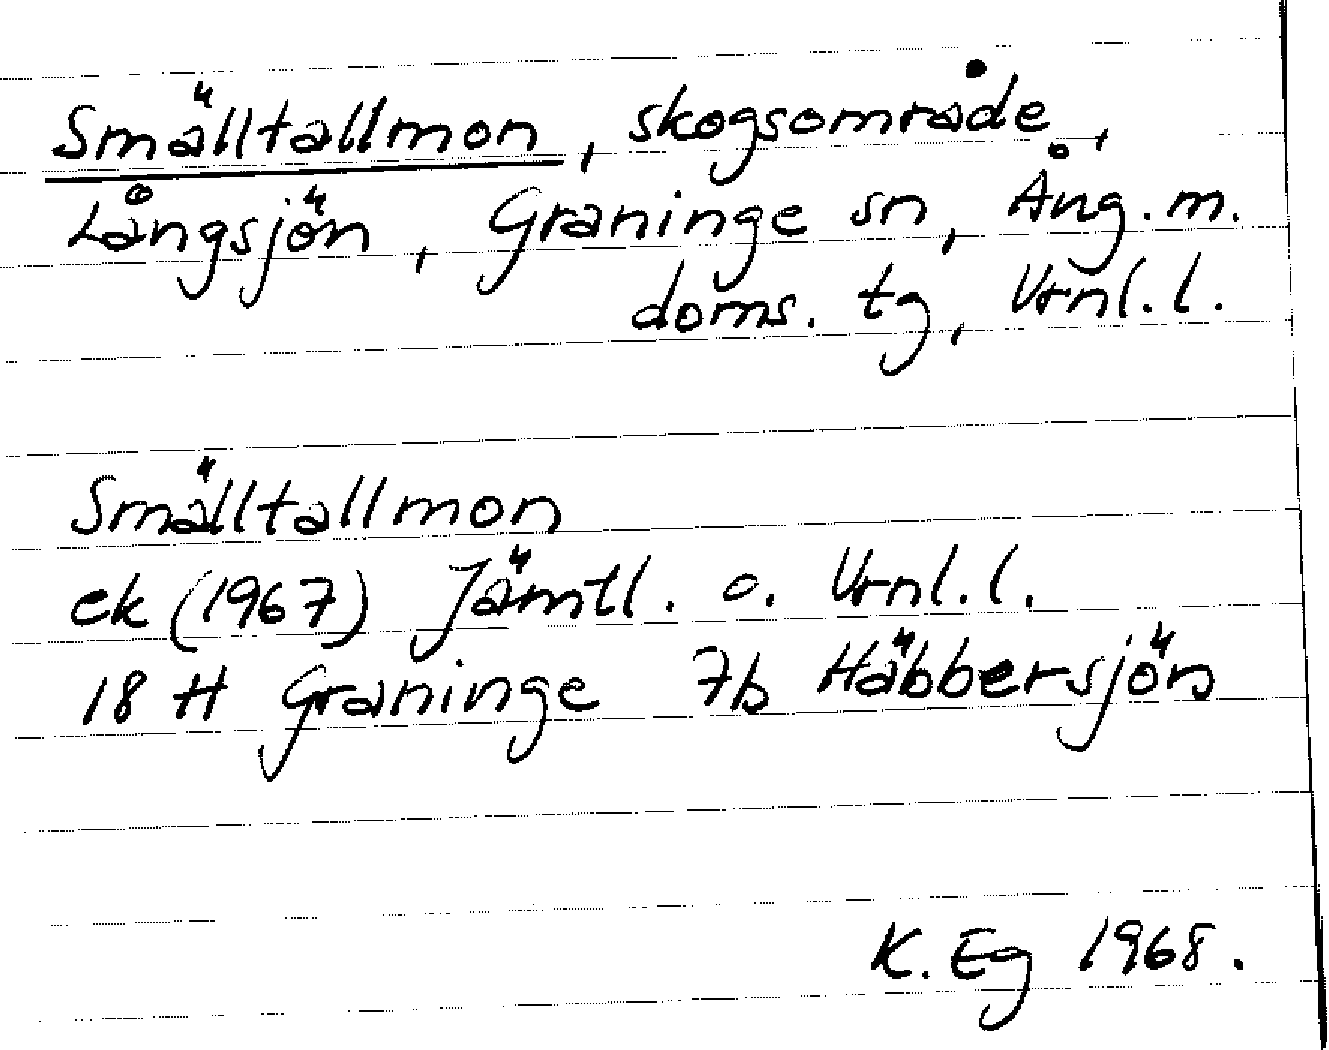 Smälltallmon, skogsområde,
Långsjön, Graninge sn, Ång.m.
doms. tg, Vrnl.l.
Smälltallmon
ek (1967) Jämtl. o. Vrnl.l.
18 H Graninge 7b Häbbersjön
K. Eg 1968.